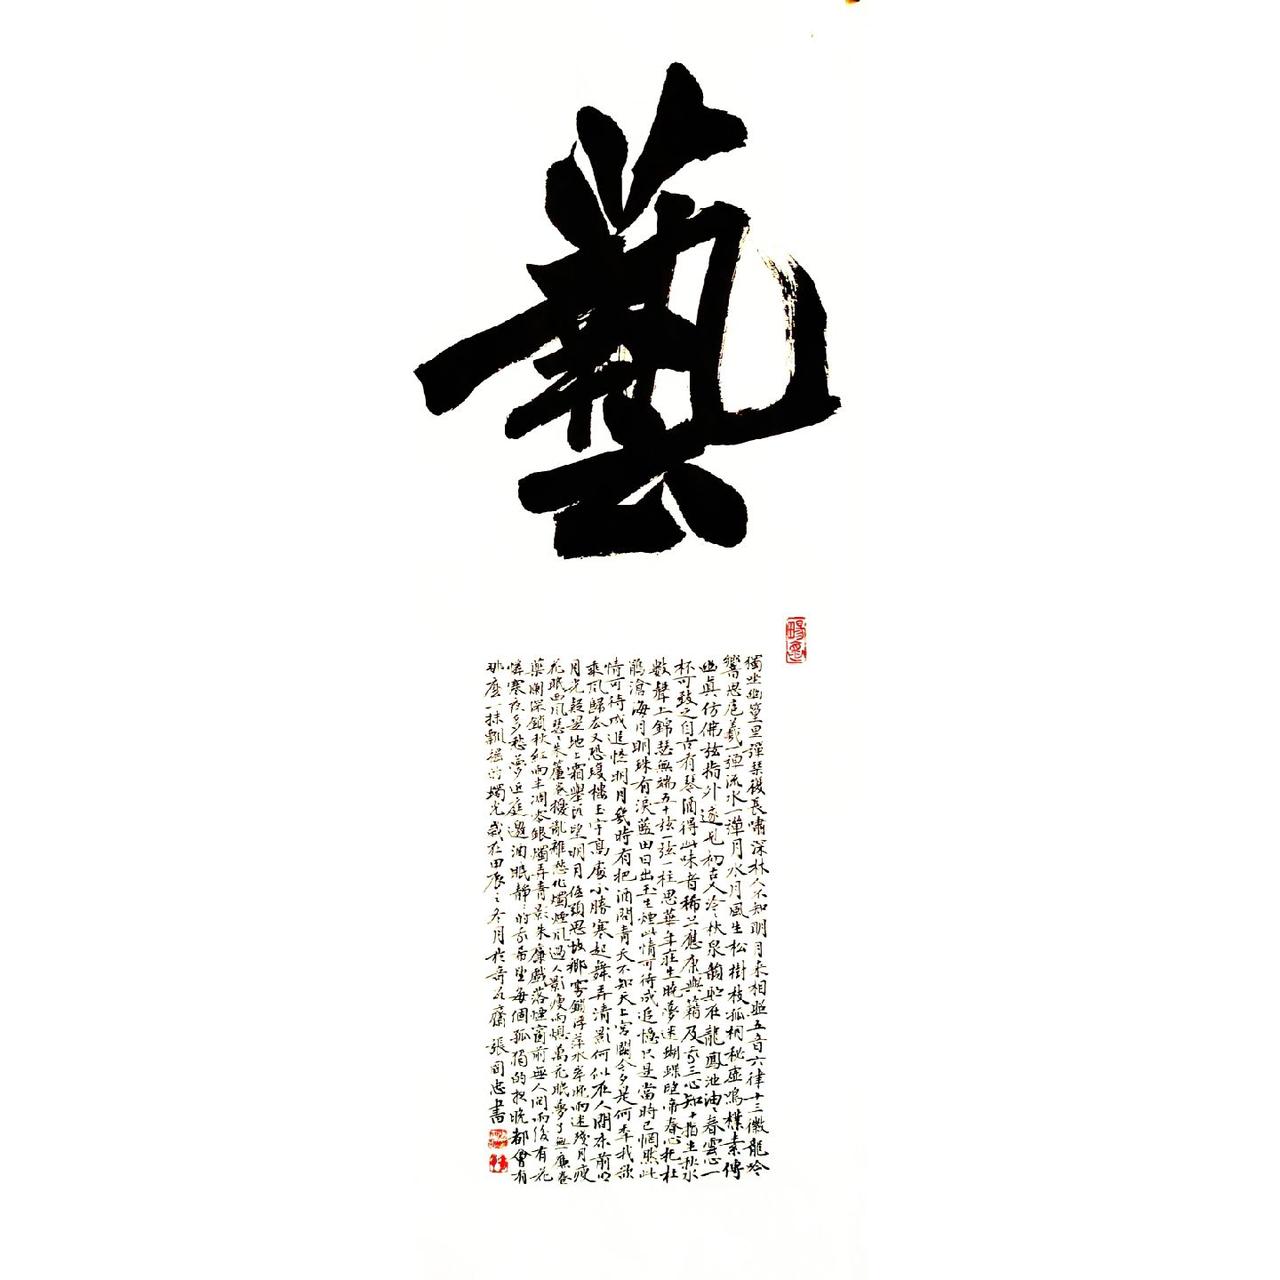 藝
獨坐幽篁里彈琴復長嘯深林人不知明月來相照五音六律十三徽龍吟
響思庖羲一彈流水一彈月水月風生松樹枝孤桐秘虛鳴樸素傳
幽真仿佛弦指外遂見初古人泠泠秋泉韻貯在龍鳳池油油春雲心一
杯可致之自古有琴酒得此味者稀只應康與籍及我三心知十指生秋水
數聲上錦瑟無端五十弦一弦一柱思華年莊生曉夢迷蝴蝶望帝春心托杜
鵑滄海月明珠有淚藍田日出玉生煙此情可待成追憶只是當時已惘然此
情可待成追憶明月幾時有把酒問青天不知天上宮闕今夕是何年我欲
乘風歸去又恐瓊樓玉宇高處不勝寒起舞弄清影何似在人間床前明
月光疑是地上霜舉頭望明月低頭思故鄉霧鎖浮萍水 雨迷殘月瘦
花眠西風瑟瑟朱簾 擾亂離愁化燭煙風過人影瘦雨 萬花眠夢了無 卷
葉闌深鎖秋紅雨半凋零銀燭弄青影朱簾戲落煙窗前無人問雨後有花
憐寒夜多愁夢近庭邊酒眠靜靜的 希望每個孤獨的夜晚都會有
那麼一抹飄搖的燭光 在甲辰之冬月於奇石齋 張同忠書